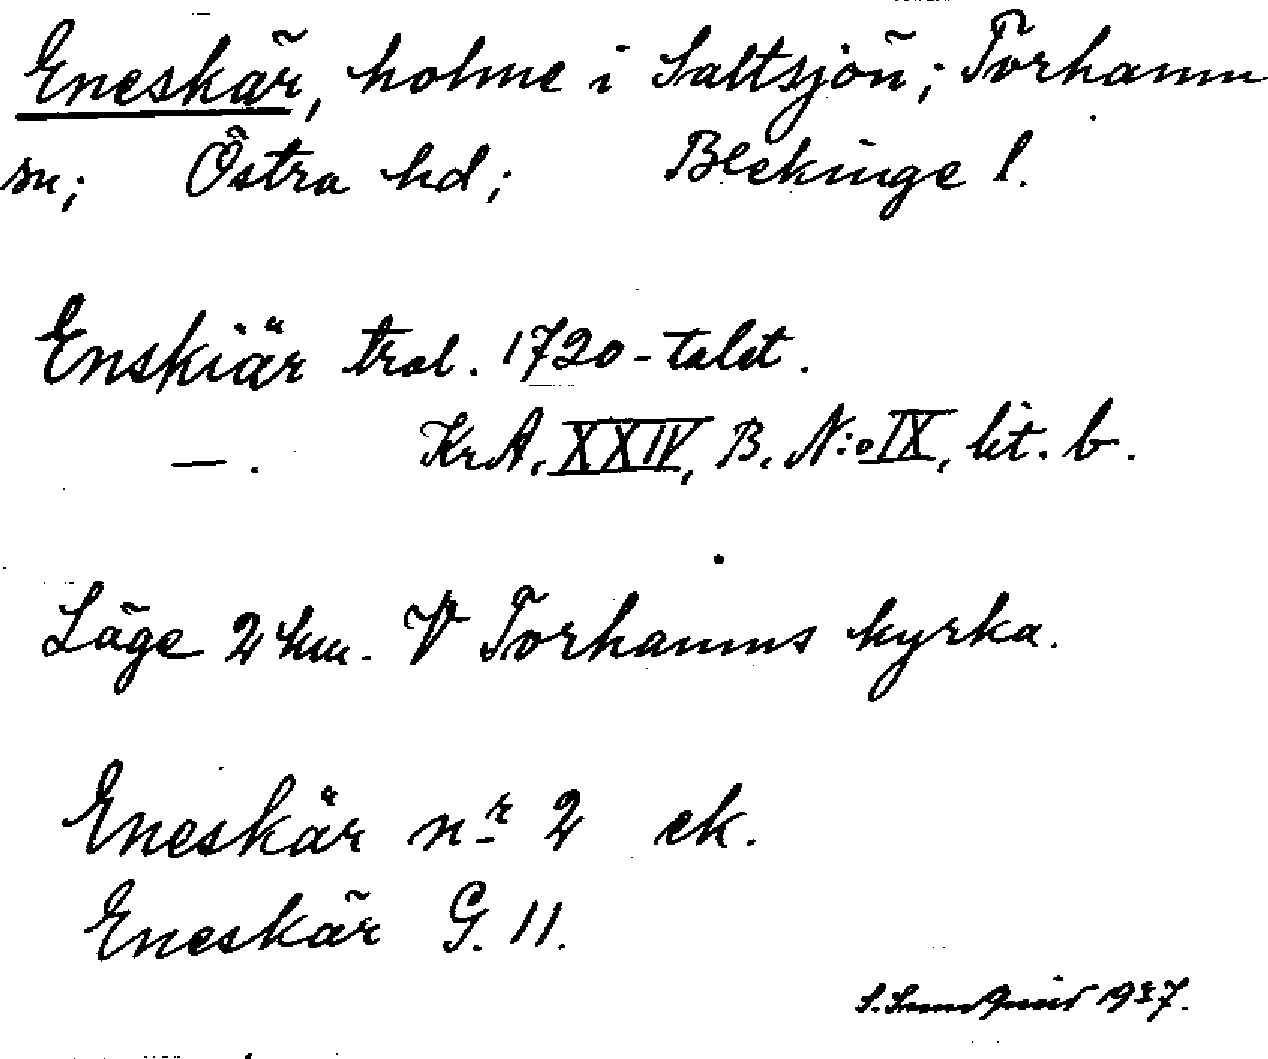 Eneskär, holme i Saltsjön; Torhamn
sn; Östra hd; Blekinge l.
Enskiär trol. 1720-talet.
—. KrA. XXIV, B. N:o IX, lit. b.
Läge 2 km. V Torhamns kyrka.
Eneskär nr 2 ek.
Eneskär G. 11.
S. 1937.